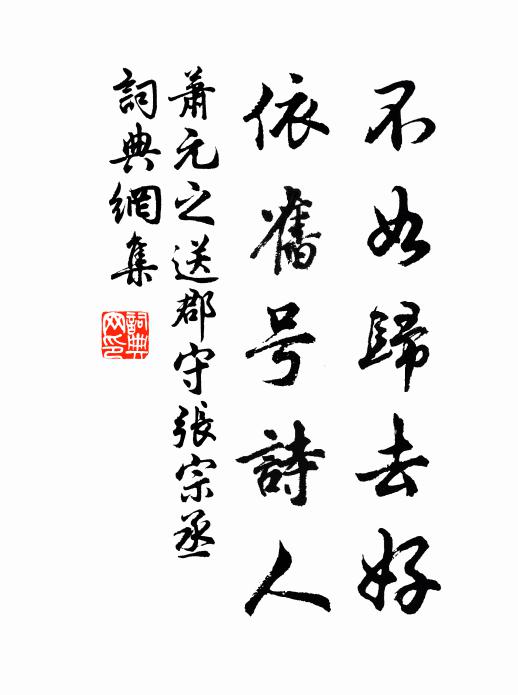 不如歸去好
依舊号詩人
蕭元之送郡守張宗丞
詞典網集
詞典网印